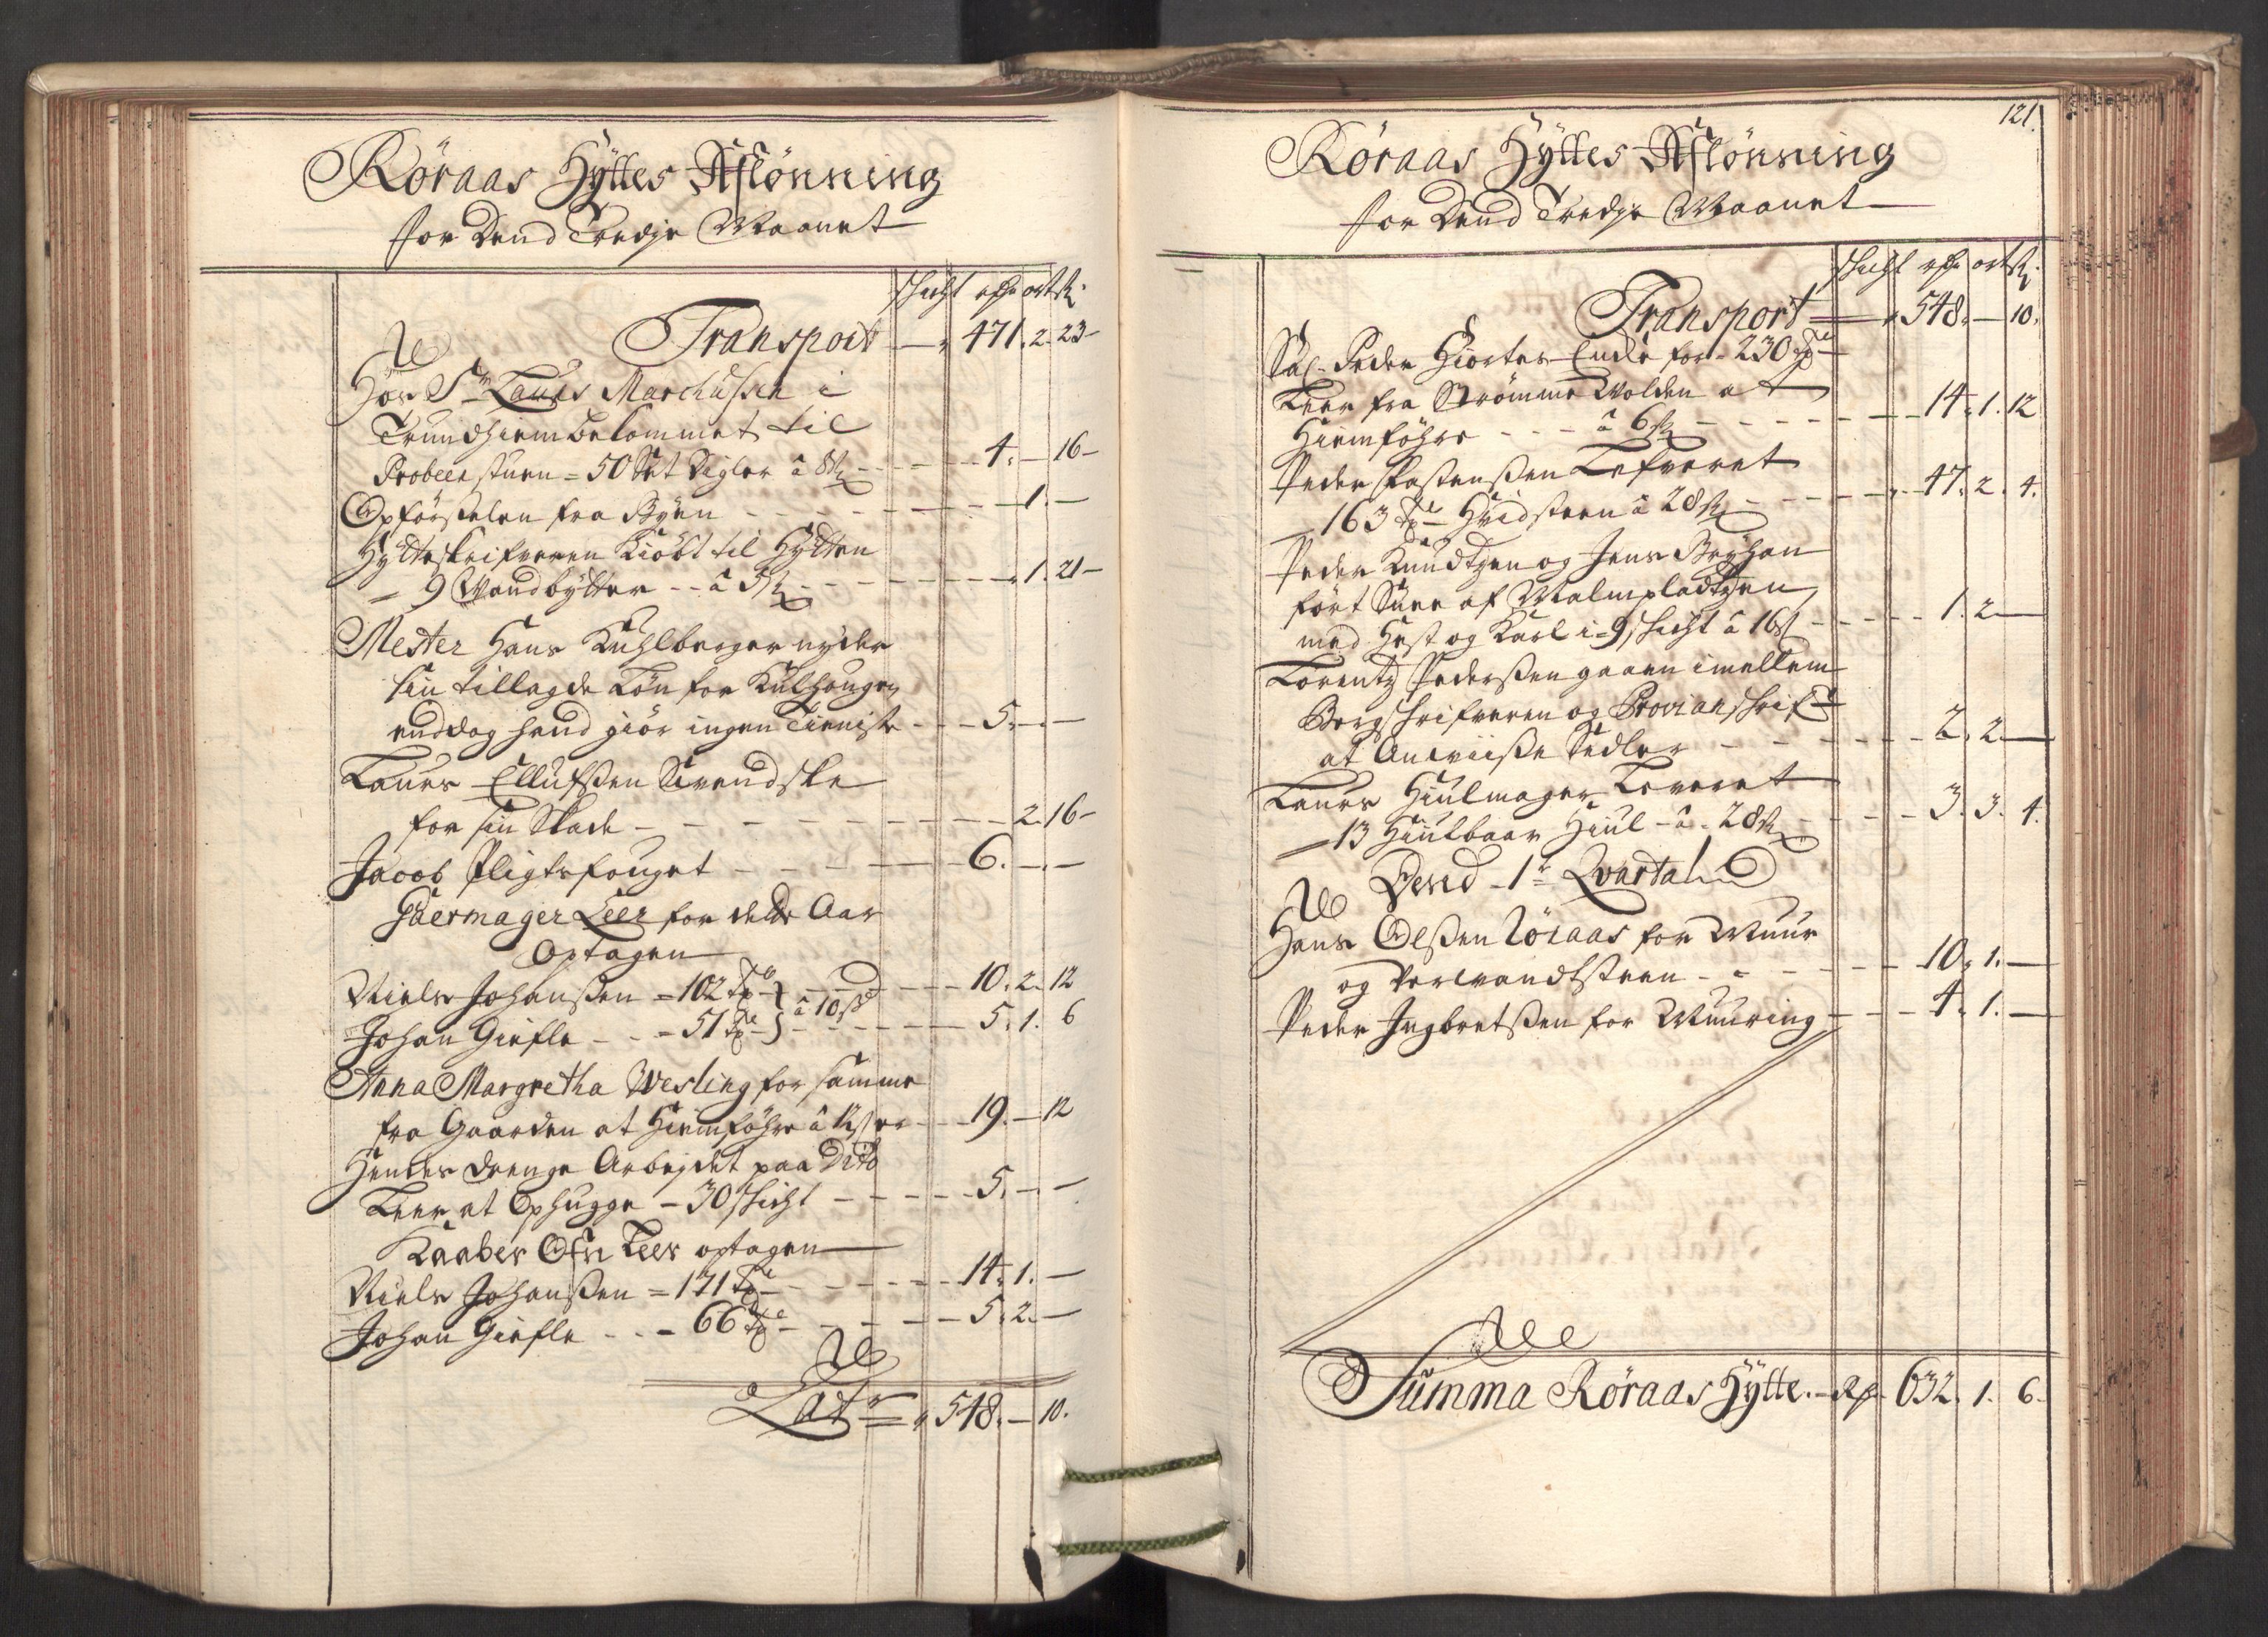 Röraas Hyttes Aflönning
for Dend Tredje Maanet
schicht rdr ort sk
Transport - 471. 2. 23
Hos Sr Laurs Marchussen i
Trundhiem bekommet til
Probeer stuen = 50 Sæt Digler â 8 sk - 4. - 16
Opförselen fra Byen - 1. -
Hytteskrifveren Kiöbt til Hytten
9 Vandbytter â 5 sk - 1. 21
Mester Hans Kuhlberger nyder
sin tillagde Lön for Kulhougen
enddog hand giör ingen Tieniste - 5. - -
Laurs Ellufsen Svendske
for sin Skade - 2. 16
Jacob Pligtsfouget - 6. - -
Gaermager Leer for dette Aar
Optagen
Niels Johansen = 102 Tr 10. 2. 12
â 10 s
Johan Giefle - = 51 Tr 5. 1. 6
Anna Margretha Wesling for samme
fra Gaarden at Hiemföhre â 12 - 19. - 12
Hendes Drenge Arbejdet paa Dito
Leer at Ophugge - 30 schicht - 5. - -
Kaaber Ofn Leer optagen
Niels Johansen = 171 Tr - 14. 1. -
Johan Giefle - = 66 Tr - 5. 2. -
Latr 548. - 10.
121.
Röraas Hyttes Aflönning
for Dend Tredje Maanet
schicht rdr ort sk
Transport 548. - 10.
Sal. Peder Hiortes Encke for 230 Tr
Leer fra Strömme Volden at
Hiemföhre - - - â 6 sk - 14. 1. 12
Peder Lefveret
163 Tr Hvidsteen â 28 sk - 47. 2. 4.
Peder Knudtzen og Jens Bryhan
fört Snee af Malmpladtzen
med Hest og Karl i 9 schicht â 16 s - 1. 2. -
Lorentz Pedersen gaaen imellem
Bergschrifveren og Provianschrif
at Anviise Sedler - 2. 2. -
Laurs Hiulmager Leveret
13 Hiulbaar Hiul - â 28 sk - 3. 3. 4.
Dend 1te Qvartal
Hans Olsen Röraas for Muur
og Vervandtsteen - 10. 1. -
Peder Ingbretsen for Muuring - 4. 1. -
Summa Röraas Hytte. - Rdr 632. 1. 6.